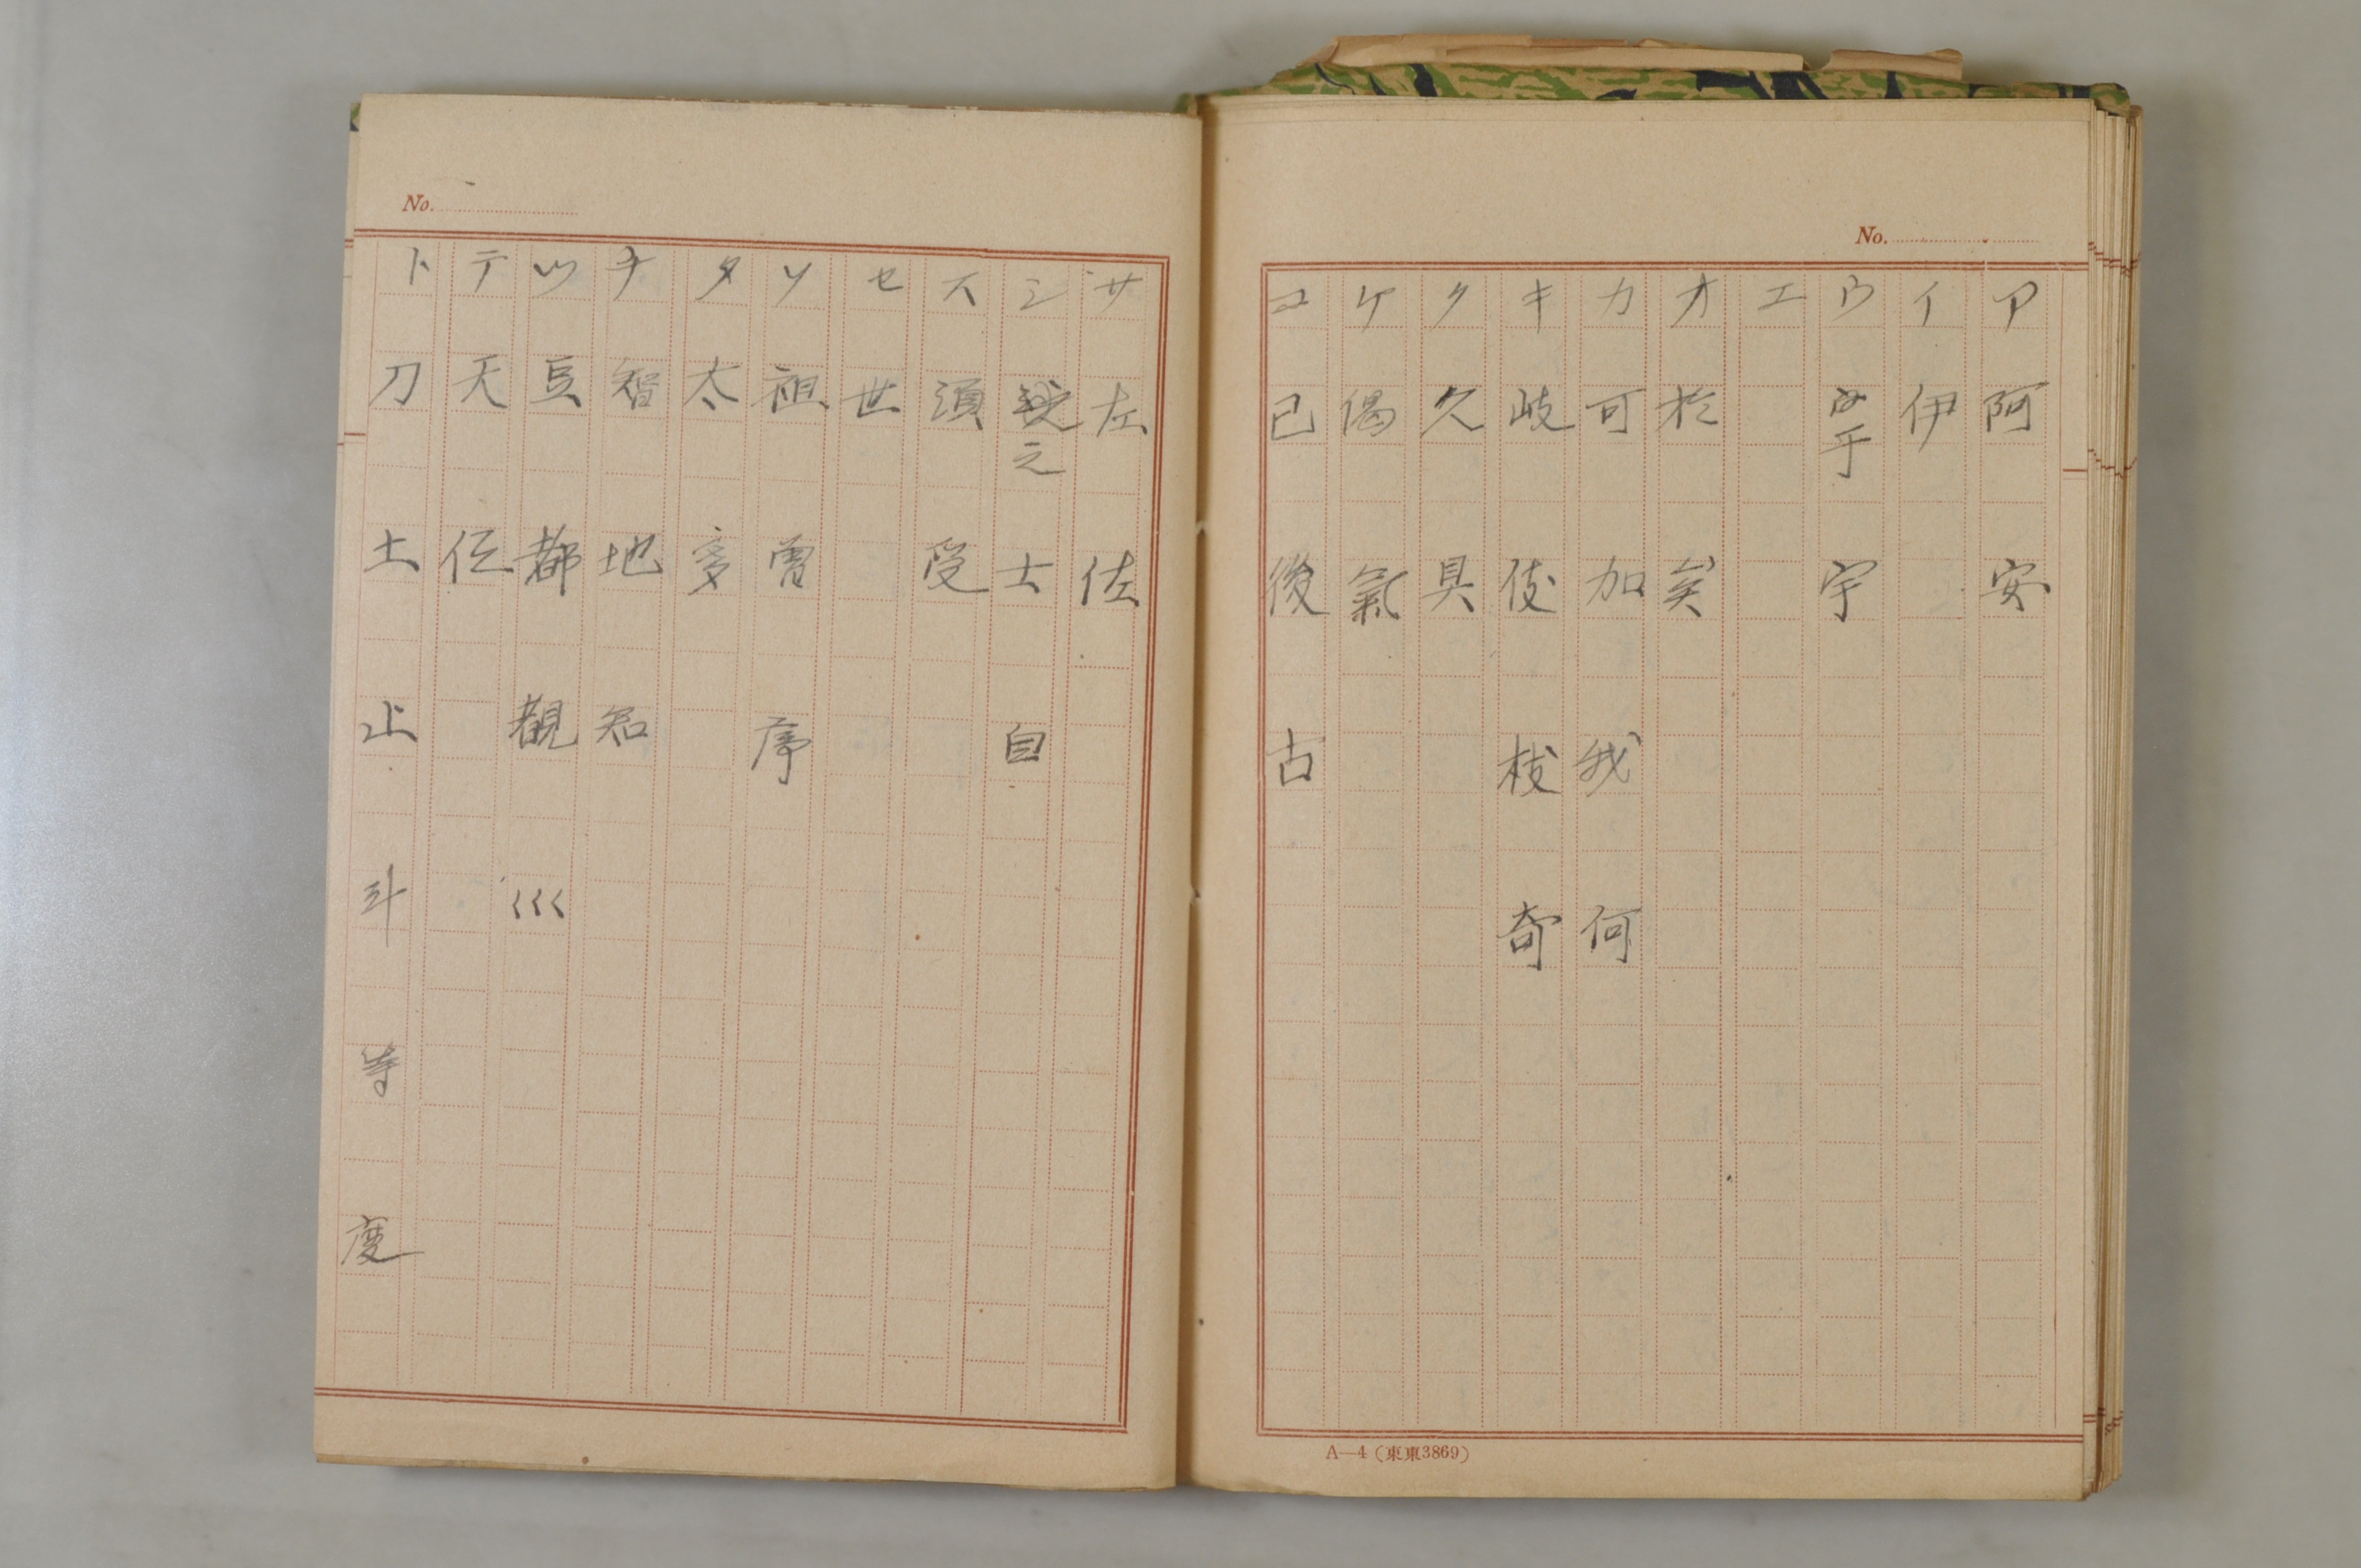 No.
ア 阿 安
イ 伊
ウ 于 宇
エ
オ 於 矣
カ 可 加 我 何
キ 岐 伎 枝 奇
ク 久 具
ケ 偈 氣
コ 己 後 古
A—4 (東東3869)
No.
サ 左 佐
シ 之 士 自
ス 須 受
セ 世
ソ 祖 曽 序
タ 太 多
チ 智 地 知
ツ 豆 都 覩 巛
テ 天
ト 刀 土 止 斗 等 度